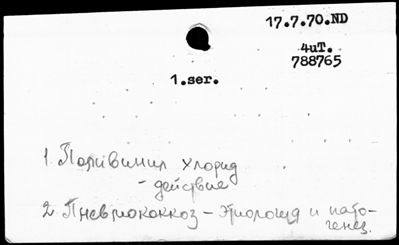 17.7.70.ND
4uT.
788765
1.ser.
1. Поливинил хлорид
- действие
2. Пневмококкоз - Этиология и пато-
генез.